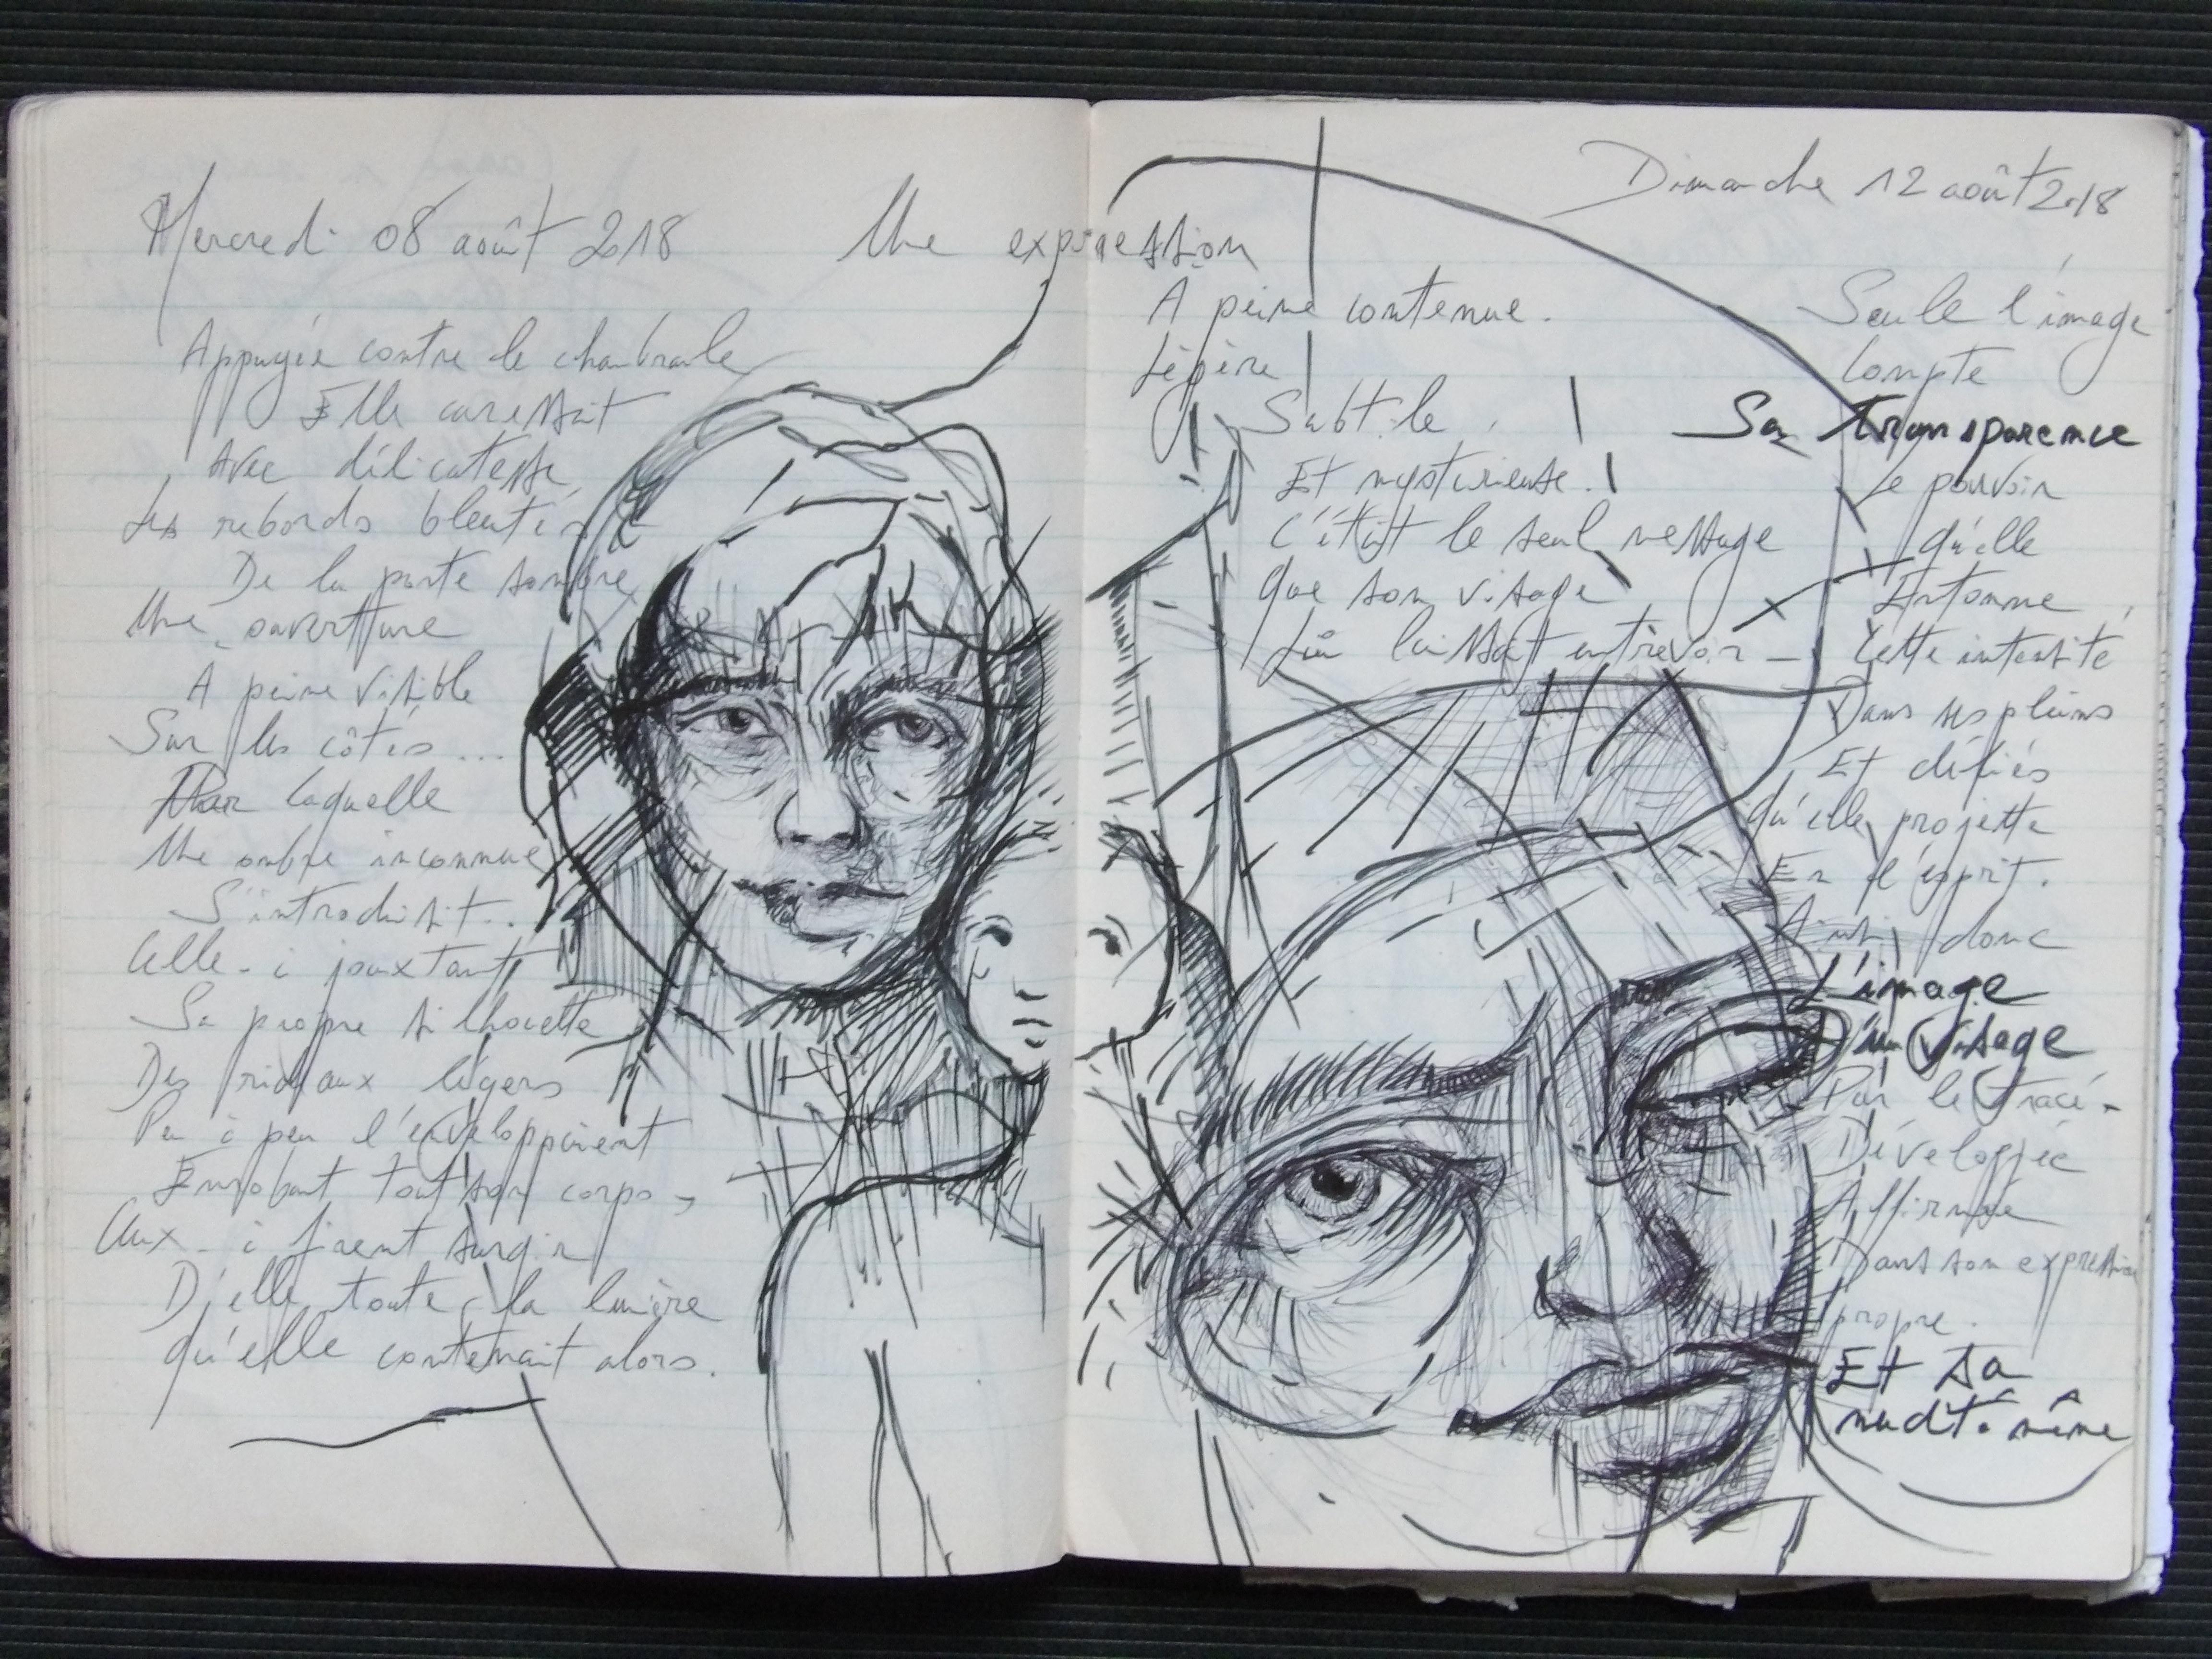 Mercredi 08 août 2018
Appuyée contre le chambranle
Elle caressait
Avec délicatesse
Les rebords bleutés
De la porte sombre
Une ouverture
A peine visible
Sur les côtés ...
Par laquelle
Une ombre inconnue
S'introduisit..
Celle-ci jouxtant
Sa propre silhouette
Des rideaux légers
Peu à peu l'enveloppèrent
Enrobant tout son corps,
Ceux-ci firent surgir
D'elle toute la lumière
Qu'elle contenait alors.
Une expression
A peine contenue.
Légère
Subtile
Et mystérieuse.
C'était le seul message
Que son visage
Lui laissait entrevoir _
Dimanche 12 août 2018
Seule l'image
Compte
Sa transparence
Le pouvoir
Qu'elle
Entonne
Cette intensité
Dans ses pleins
Et déliés
Qu'elle projette
En l'esprit.
Ainsi donc
L'image
D'un visage
Par le tracé -
Développée
Affirmée
Dans son expression
propre.
Et sa
nudité même